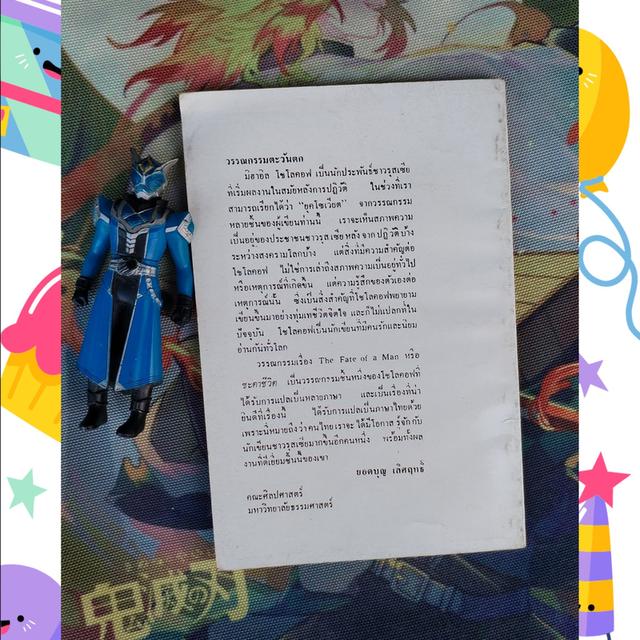 วรรณกรรมตะวันตก
มิฮาอิล โชโลคอฟ เป็นนักประพันธ์ชาวรุสเซีย
ที่เริ่มผลงานในสมัยหลังการปฏิวัติ ในช่วงที่เรา
สามารถเรียกได้ว่า "ยุคโซเวียต" จากวรรณกรรม
หลายชิ้นของผู้เขียนท่านนี้ เราจะเห็นสภาพความ
เป็นอยู่ของประชาชนชาวรุสเซียหลังจากปฏิวัติบ้าง
ระหว่างสงครามโลกบ้าง แต่สิ่งที่มีความสำคัญต่อ
โชโลคอฟ ไม่ใช่การเล่าถึงสภาพความเป็นอยู่ทั่วไป
หรือเหตุการณ์ที่เกิดขึ้น แต่ความรู้สึกของตัวเองต่อ
เหตุการณ์นั้น ซึ่งเป็นสิ่งสำคัญที่โชโลคอฟพยายาม
เขียนขึ้นมาอย่างทุ่มเทชีวิตจิตใจ และก็ไม่แปลกที่ใน
ปัจจุบัน โชโลคอฟเป็นนักเขียนที่มีคนรักและนิยม
อ่านกันทั่วโลก
วรรณกรรมเรื่อง The Fate of a Man หรือ
ชะตาชีวิต เป็นวรรณกรรมชิ้นหนึ่งของโชโลคอฟที่
ได้รับการแปลเป็นหลายภาษา และเป็นเรื่องที่น่า
ยินดีที่เรื่องนี้ ได้รับการแปลเป็นภาษาไทยด้วย
เพราะนี่หมายถึงว่าคนไทยเราจะได้มีโอกาสรู้จักกับ
นักเขียนชาวรุสเซียมากขึ้นอีกคนหนึ่ง พร้อมทั้งผล
งานที่ดีเยี่ยมชิ้นนี้ของเขา
ยอดบุญ เลิศฤทธิ์
คณะศิลปศาสตร์
มหาวิทยาลัยธรรมศาสตร์
鬼滅の刃